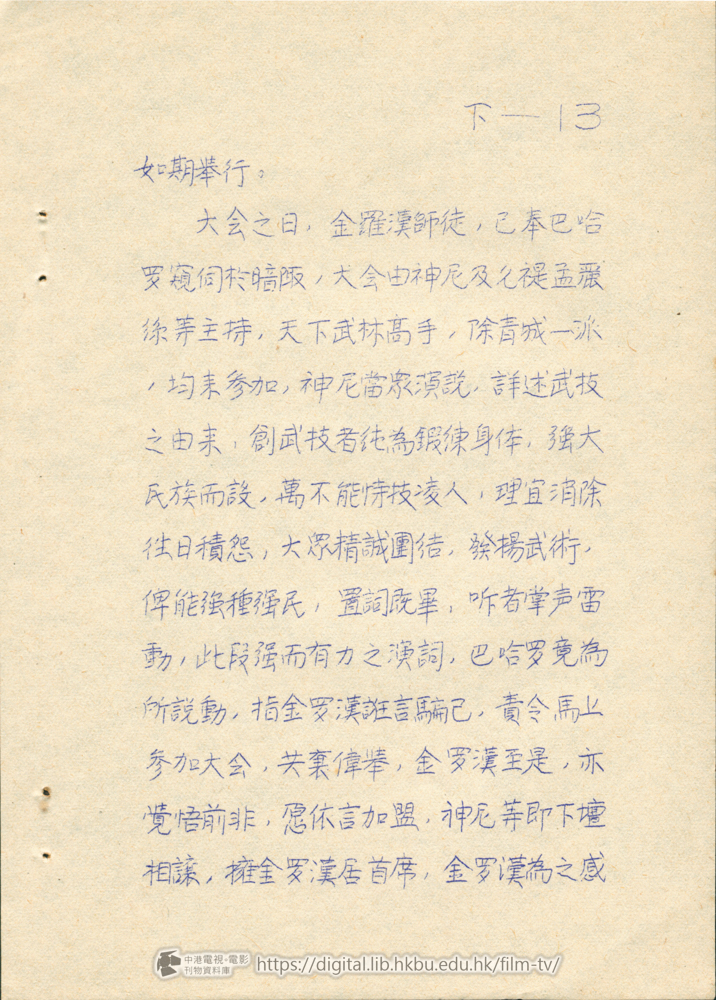 下—13
如期舉行。
大会之日，金羅漢師徒，已奉巴哈
罗窺伺於暗陬，大会由神尼及幺禔孟麗
絲等主持，天下武林高手，除青城一派
，均来参加，神尼當眾演說，詳述武技
之由来，創武技者純為鍛練身体，强大
民族而設，萬不能恃技凌人，理宜消除
往日積怨，大眾精誠團结，發揚武術，
俾能强種强民，置詞既畢，听者掌声雷
動，此段强而有力之演詞，巴哈罗竟為
所説動，指金罗漢誑言騙己，責令馬上
参加大会，共襄偉舉，金罗漢至是，亦
覺悟前非，愿依言加盟，神尼等即下壇
相讓，擁金罗漢居首席，金罗漢為之感
中港電視·電影
刊物資料庫
https://digital.lib.hkbu.edu.hk/film-tv/